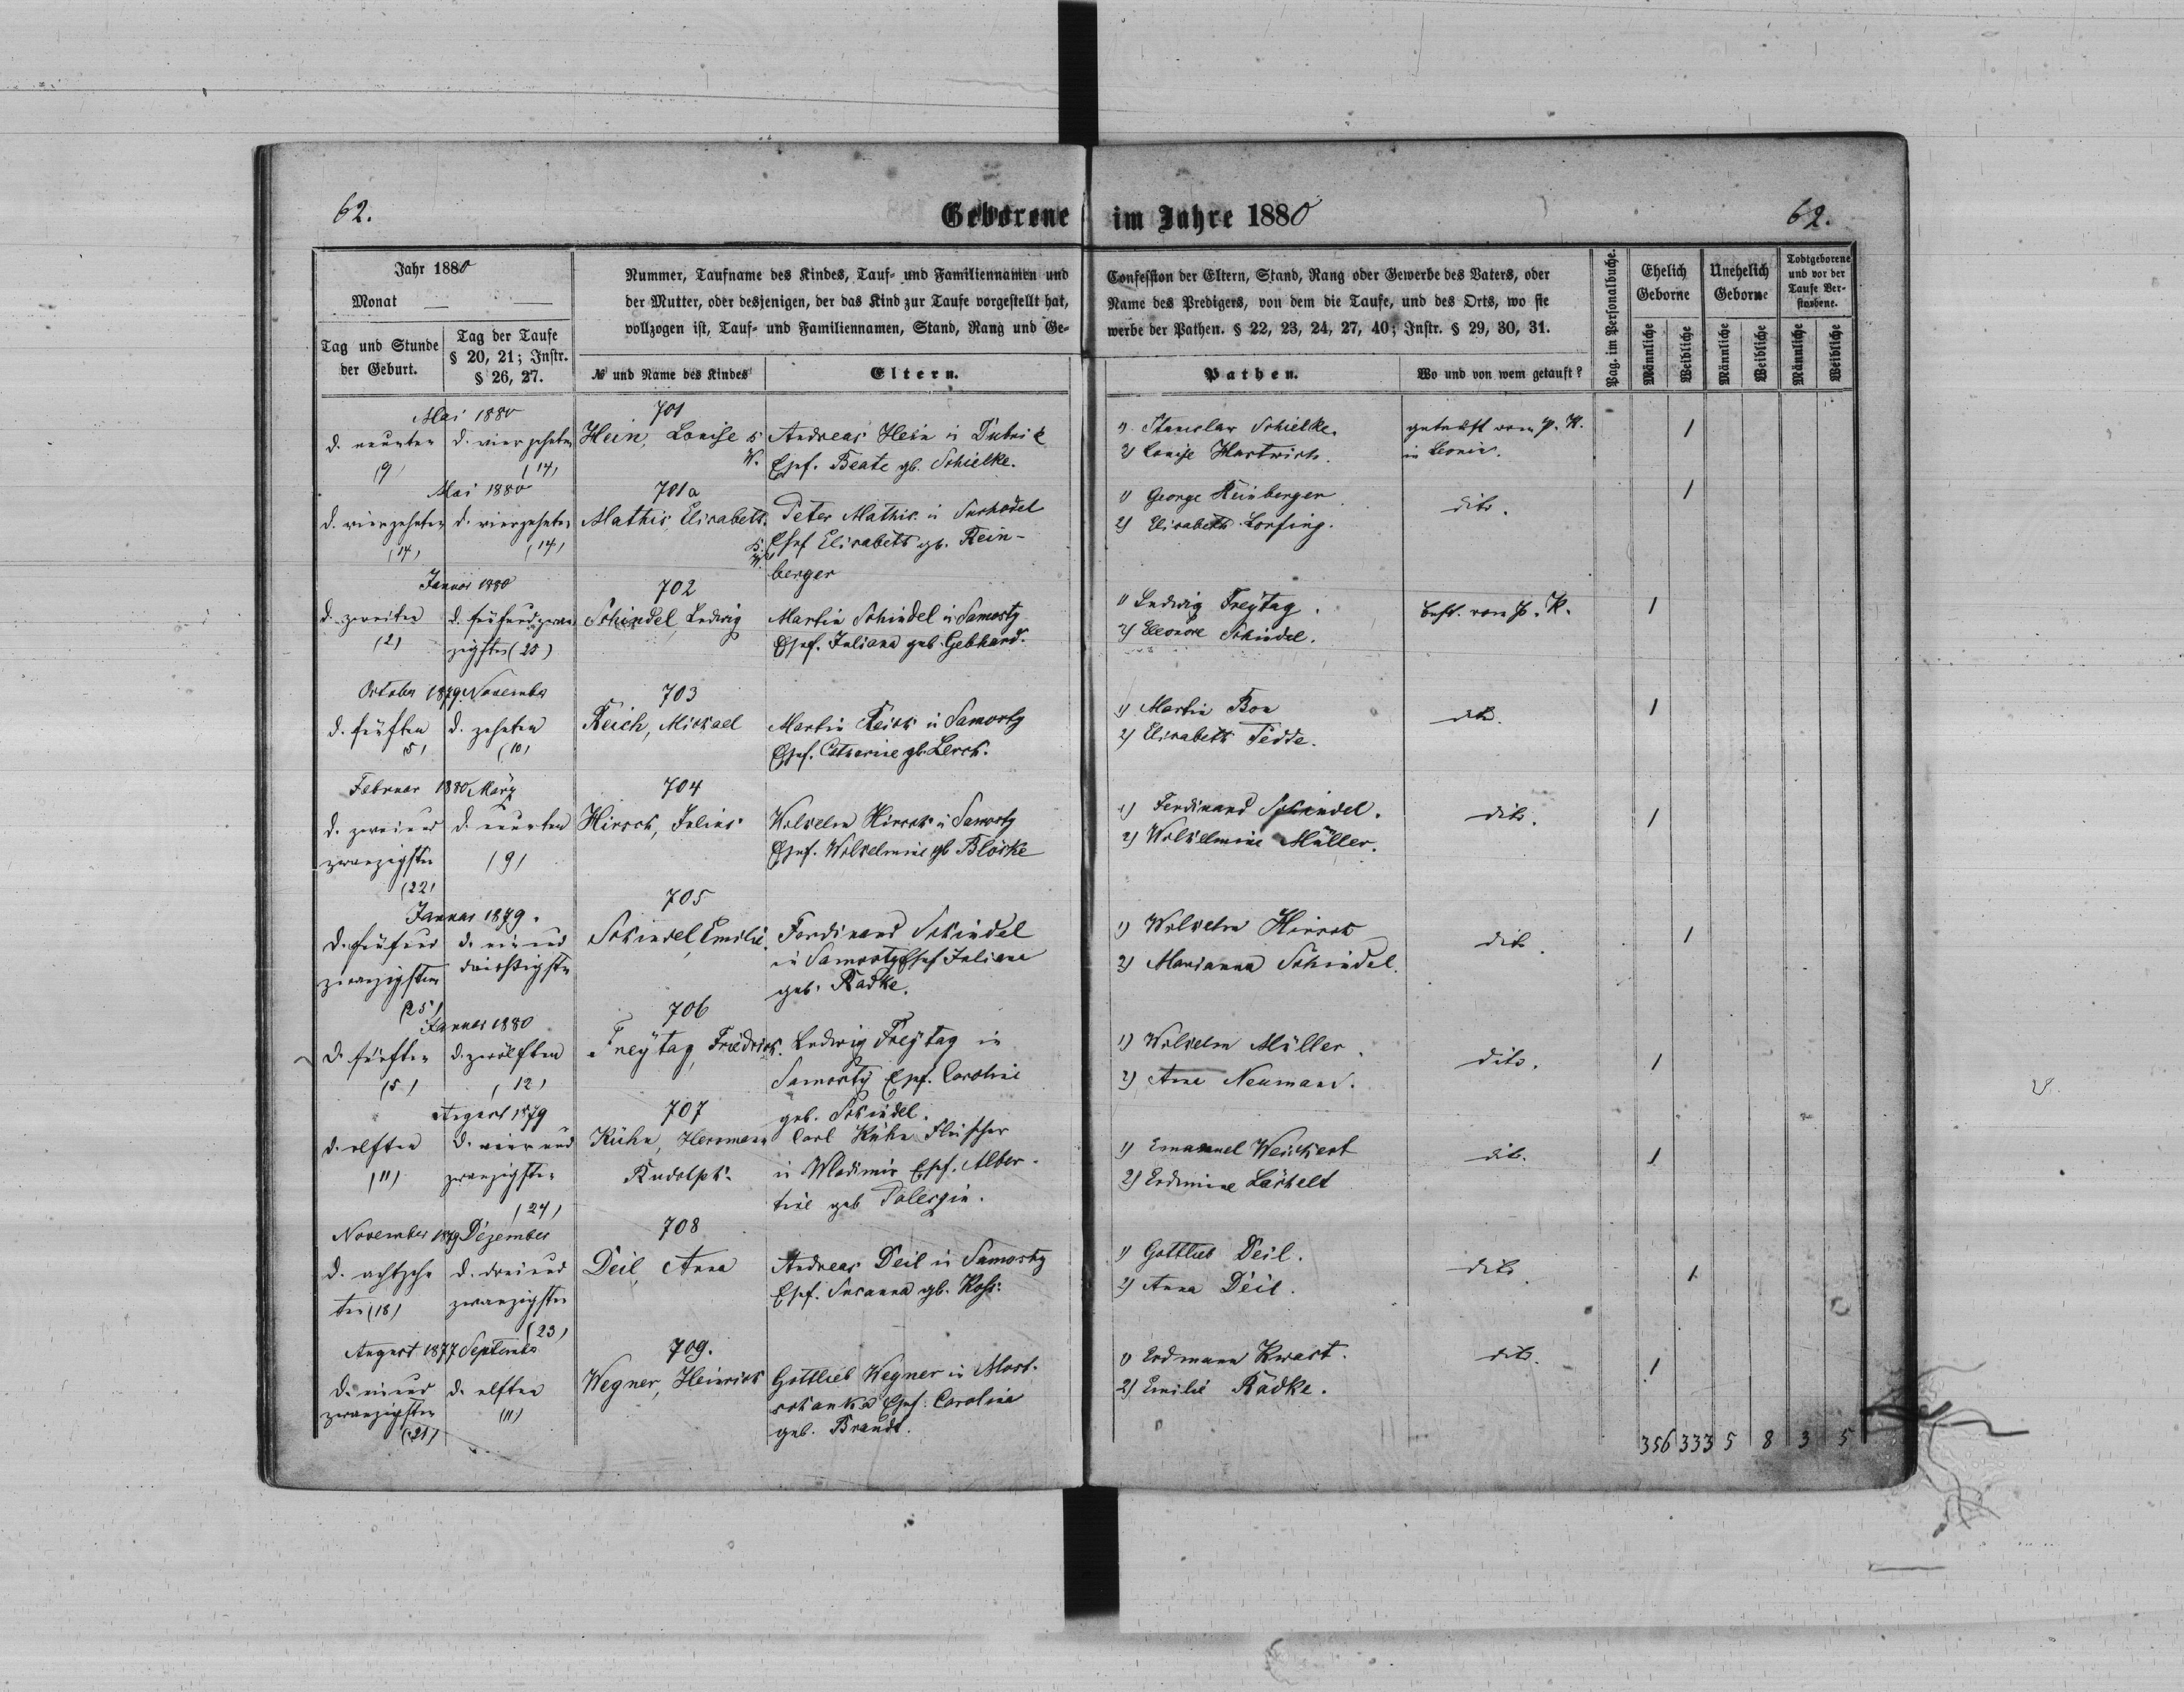 62.
Geborene im Jahre 1880
62.
Jahr 1880
Monat
Tag und Stunde
der Geburt.
Tag der Taufe
§ 20, 21; Instr.
§ 26, 27.
Nummer, Taufname des Kindes, Tauf- und Familiennamen und
der Mutter, oder desjenigen, der das Kind zur Taufe vorgestellt hat,
vollzogen ist, Tauf- und Familiennamen, Stand, Rang und Ge-
№ und Name des Kindes
Eltern.
Confession der Eltern, Stand, Rang oder Gewerbe des Vaters, oder
Name des Predigers, von dem die Taufe, und des Orts, wo sie
werbe der Pathen. § 22, 23, 24, 27, 40; Instr. § 29, 30, 31.
Pathen.
Wo und von wem getauft?
Pag. im Personalbuche.
Ehelich
Geborne
Unehelich
Geborne
Todtgeborene
und vor der
Taufe Ver-
storbene.
Männliche
Weibliche
Männliche
Weibliche
Männliche
Weibliche
Mai 1880
d. neunten
(9)
d. vierzehnten
(14)
701
Hein, Louise
Andreas Hein in
Ehef. Beate gb. Schielke.
1) Stanislaw Schielke.
2) Louise Hartwich.
getauft vom P. K.
in
1
Mai 1880
d. vierzehnten
(14)
d. vierzehnten
(14)
701a
Mathis, Elisabeth.
Peter Mathis in
Ehef Elisabeth gb. Rein-
berger
1) George Reinberger
2) Elisabeth
dito.
1
Januar 1880
d. zweiten
(2)
d. fünfundzwan
zigsten (25)
702
Schindel, Ludwig
Martin Schindel in Samosty
Ehef. Juliana geb. Gebhard.
1) Ludwig Freÿtag.
2) Eleonore Schindel.
best. vom P. K.
1
October 1879. November
d. fünften
(5)
d. zehnten
(10)
703
Reich, Michael
Martin Reich in Samosty
Ehef. Catharine gb. Lerch.
1) Martin Bon
2) Elisabeth Tedde.
dito.
1
Februar 1880 März
d. zweiund
zwanzigsten
(22)
d. neunten
(9)
704
Hirsch, Julius
Wilhelm Hirsch in Samosty
Ehef. Wilhelmine gb
1) Ferdinand Schindel.
2) Wilhelmine Müller.
dito.
1
Januar 1879.
d. fünfund
zwanzigsten
(25)
d. einund
dreißigsten
705
Schindel, Emilie.
Ferdinand Schindel
in Samosty Ehef Juliane
geb. Radke.
1) Wilhelm Hirsch
2) Marianna Schindel.
dito.
1
Januar 1880
d. fünften
(5)
d. zwölften
(12)
706
Freÿtag, Friedrich.
Ludwig Freÿtag in
Samosty Ehef. Caroline
geb. Schindel.
1) Wilhelm Müller.
2) Anna Neumann.
dito.
1
August 1879
d. elften
(11)
d. vierund
zwanzigsten
(24)
707
Kühn, Hermann
Rudolph.
Carl Kühn Fleischer
in Wladimir Ehef. Alber-
tine geb
1) Emanuel Weichert
2)
dito.
1
November 1879 Dezember
d. achtzehn
ten (18)
d. dreiund
zwanzigsten
(23)
708
Deil, Anna
Andreas Deil in Samosty
Ehef. Susanna gb. Koß.
1) Gottlieb Deil.
2) Anna Deil.
dito.
1
August 1877 September
d. einund
zwanzigsten
(21)
d. elften
(11)
709.
Wegner, Heinrich
Gottlieb Wegner in Most-
schanka Ehef. Caroline
geb. Brandt.
1) Erdmann Kwast.
2) Emilie Radke.
dito.
1
356 333 5 8 3 5